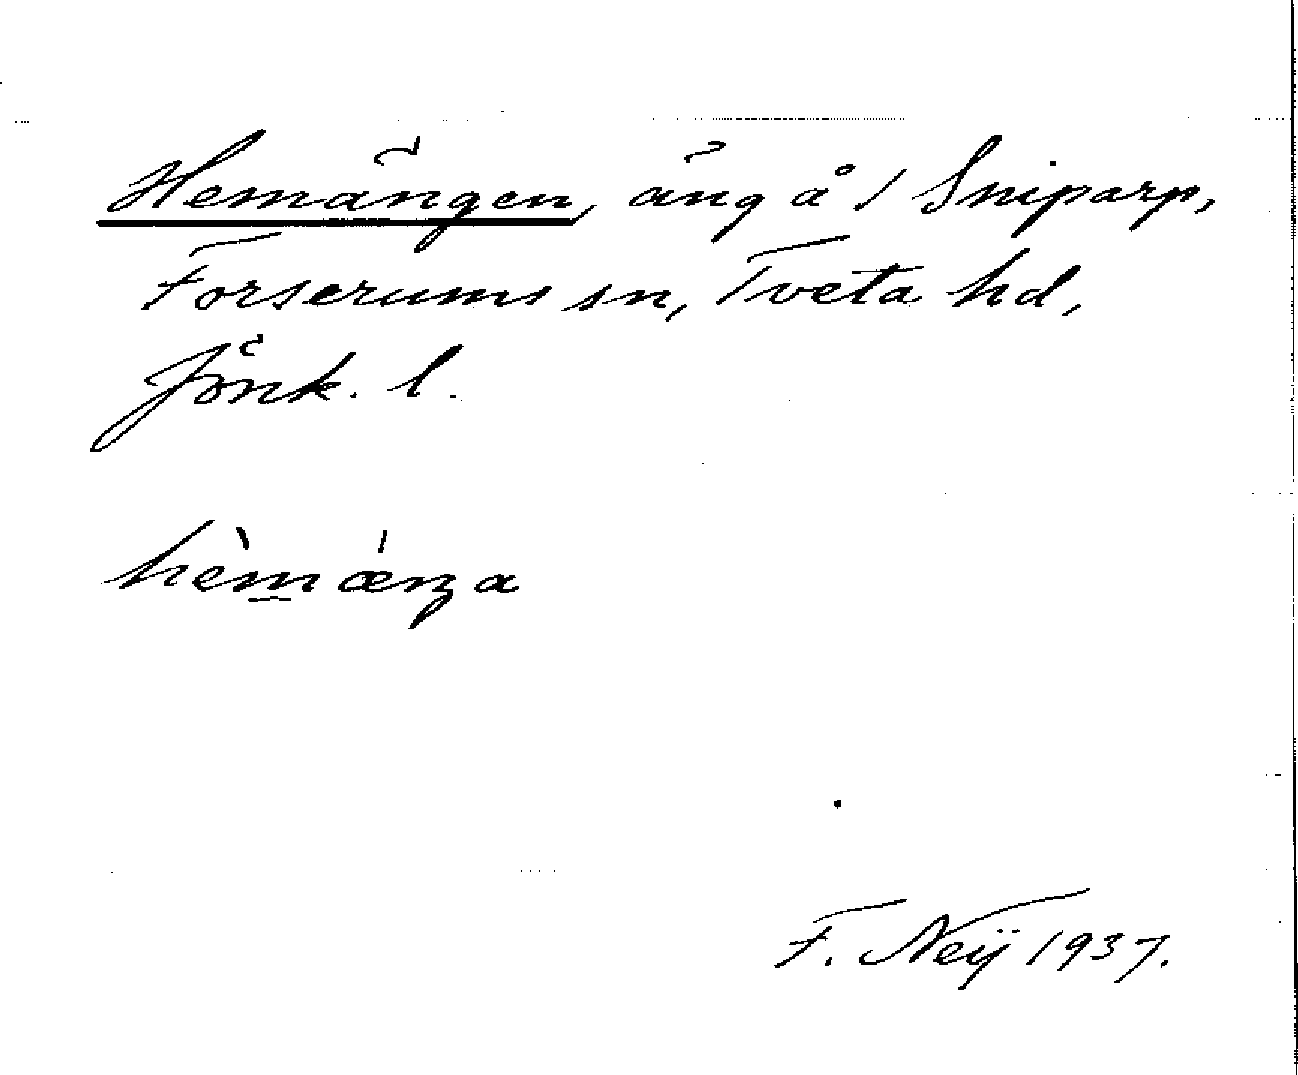 Hemängen, äng å 1 Sniparp,
Forserums sn, Tveta hd,
Jönk. l.
hèm̰ ǽŋa
F. Neÿ 1937.